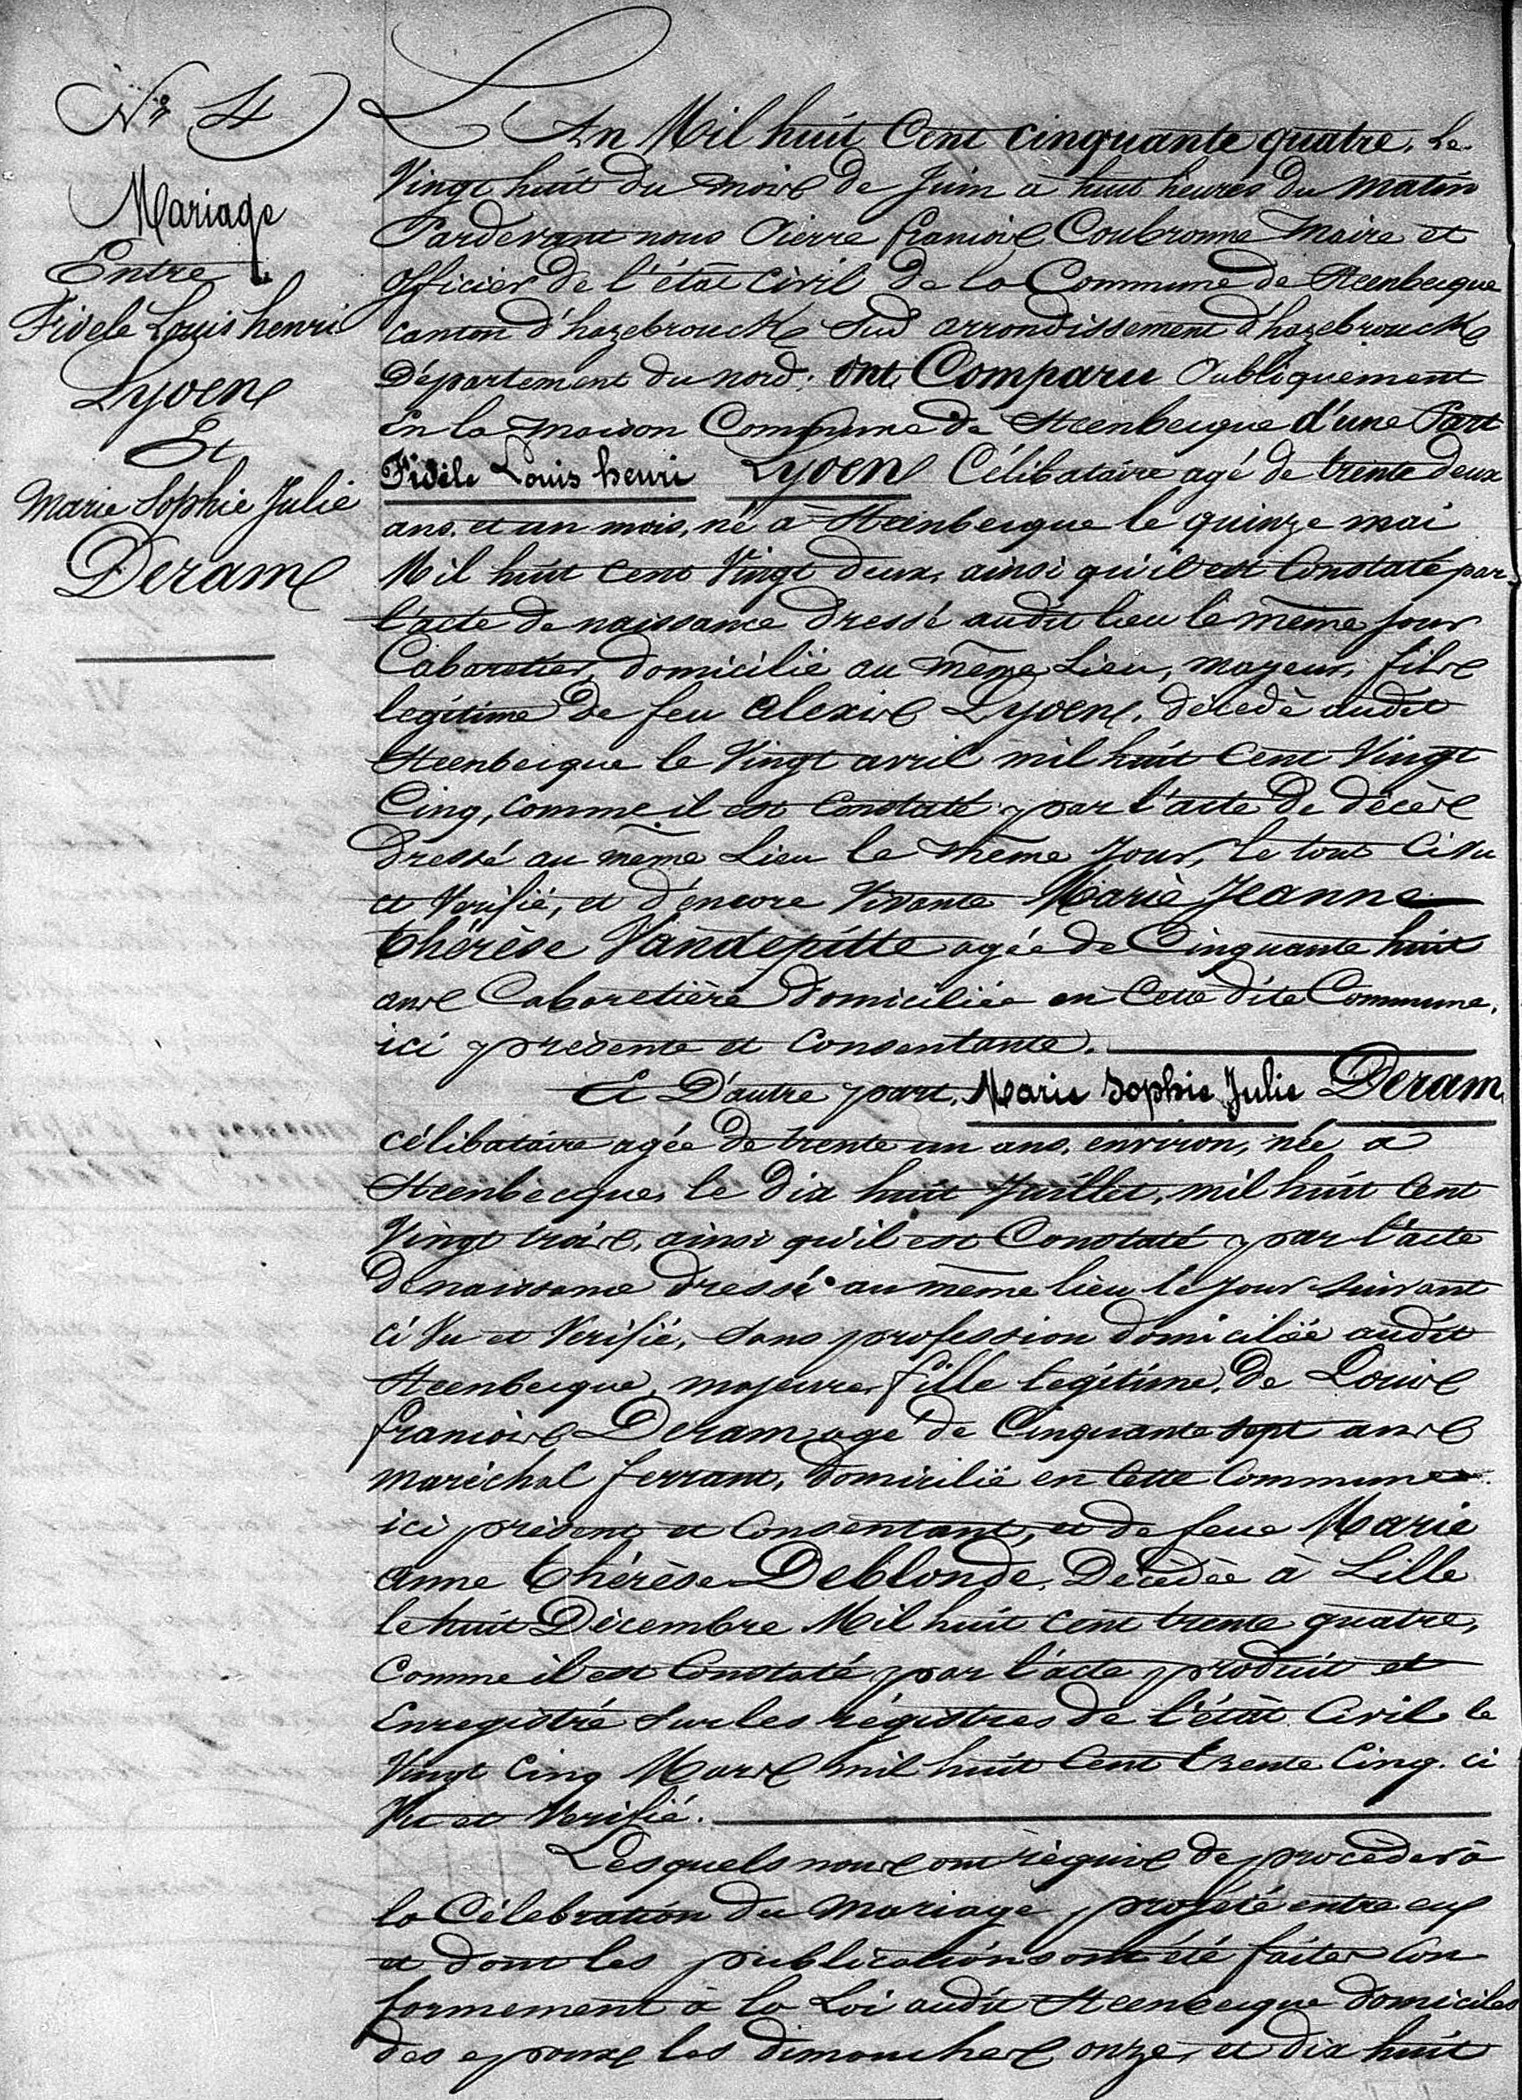 Nº 4
Mariage
Entre
Fidele Louis henri
Lyoen
Et
Marie Sophie Julie
Deram
L'An Mil huit Cent cinquante quatre, le
Vingt huit du mois de Juin à huit heures du matin
Pardevant nous Pierre françois Coubronne Maire et
officier de l'état civil de la Commune de Steenbecque
canton d'hazebrouck Sud arrondissement d'hazebrouck
Département du nord. ont Comparu Publiquement
En la maison Commune de Steenbecque d'une Part
Fidèle Louis henri Lyoen Célibataire agé de trente deux
ans, et un mois, né à Steenbecque le quinze mai
Mil huit cent Vingt deux, ainsi qu'il est Constaté par
l'acte de naissance dressé audit lieu le même jour
Cabaretier, domicilié au même Lieu, majeur, fils
legitime de feu Alexis Lyoen, décedé audit
Steenbecque le Vingt avril mil huit Cent Vingt
Cinq, comme il est Constaté par l'acte de décès
dressé au même Lieu le même Jour, le tout Ci Vu
et Verifié, et d'encore Vivante Marie Jeanne
thérèse Vandepitte agée de Cinquante huit
ans Cabaretière domiciliée en Cette dite Commune,
ici présente et Consentante.
Et D'autre part, Marie Sophie Julie Deram
célibataire agée de trente un ans, environ, née a
Steenbecque, le dix huit Juillet, mil huit Cent
Vingt trois, ainsi qu'il est Constaté par l'acte
de naissance dressé au même lieu le jour suivant
ci Vu et Verifié, sans profession domiciliée audit
Steenbecque, majeure, fille legitime, de Louis
françois Deram, agé de Cinquante sept ans
maréchal ferrant, domicilié en Cette Commune
ici présent et Consentant, et de feue Marie
anne thérèse Deblonde, Décedée à Lille
le huit Décembre Mil huit cent trente quatre,
Comme il est Constaté par l'acte produit et
Enregistré sur les régistres de l'état Civil le
Vingt Cinq Mars mil huit Cent trente Cinq. ci
Vu et Verifié.
Lesquels nous ont réquis de procéder à
la Célebration du mariage projété entre eux
et dont les publications ont été faites Con
formement à la Loi audit Steenbecque domiciles
des epoux les dimanches onze, et dix huit